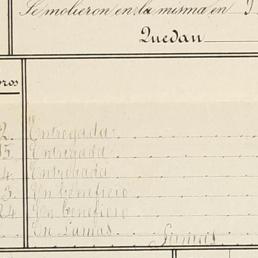 Se molieron en la misma en
Quedan
ros
2 Entregada
15 Entregada
4 Entregada
3 En beneficio
24 En beneficio
En Lamas
Sumas